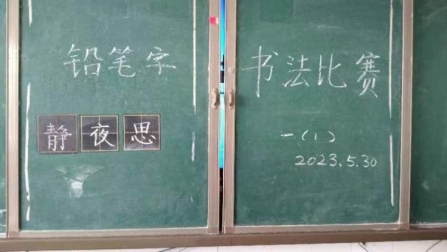 铅笔字
静夜思
书法比赛
一(1)
2023.5.30